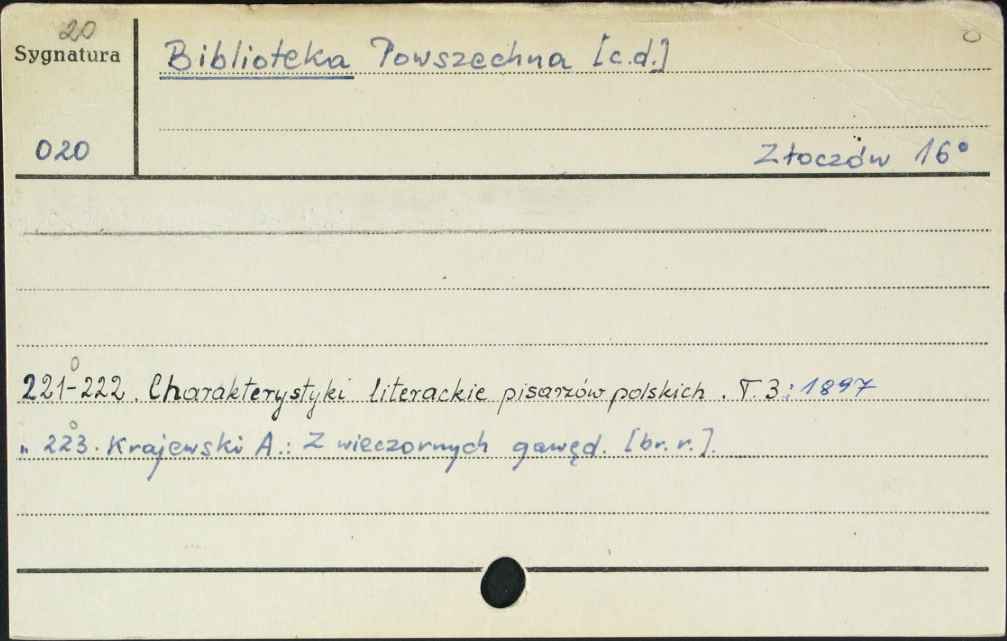 20
Sygnatura
Biblioteka Powszechna [c.d.]
020
Złoczów 16°
221-222. Charakterystyki literackie pisarzów polskich. T. 3: 1897
" 223. Krajewski A.: Z wieczornych gawęd. [br. r.].